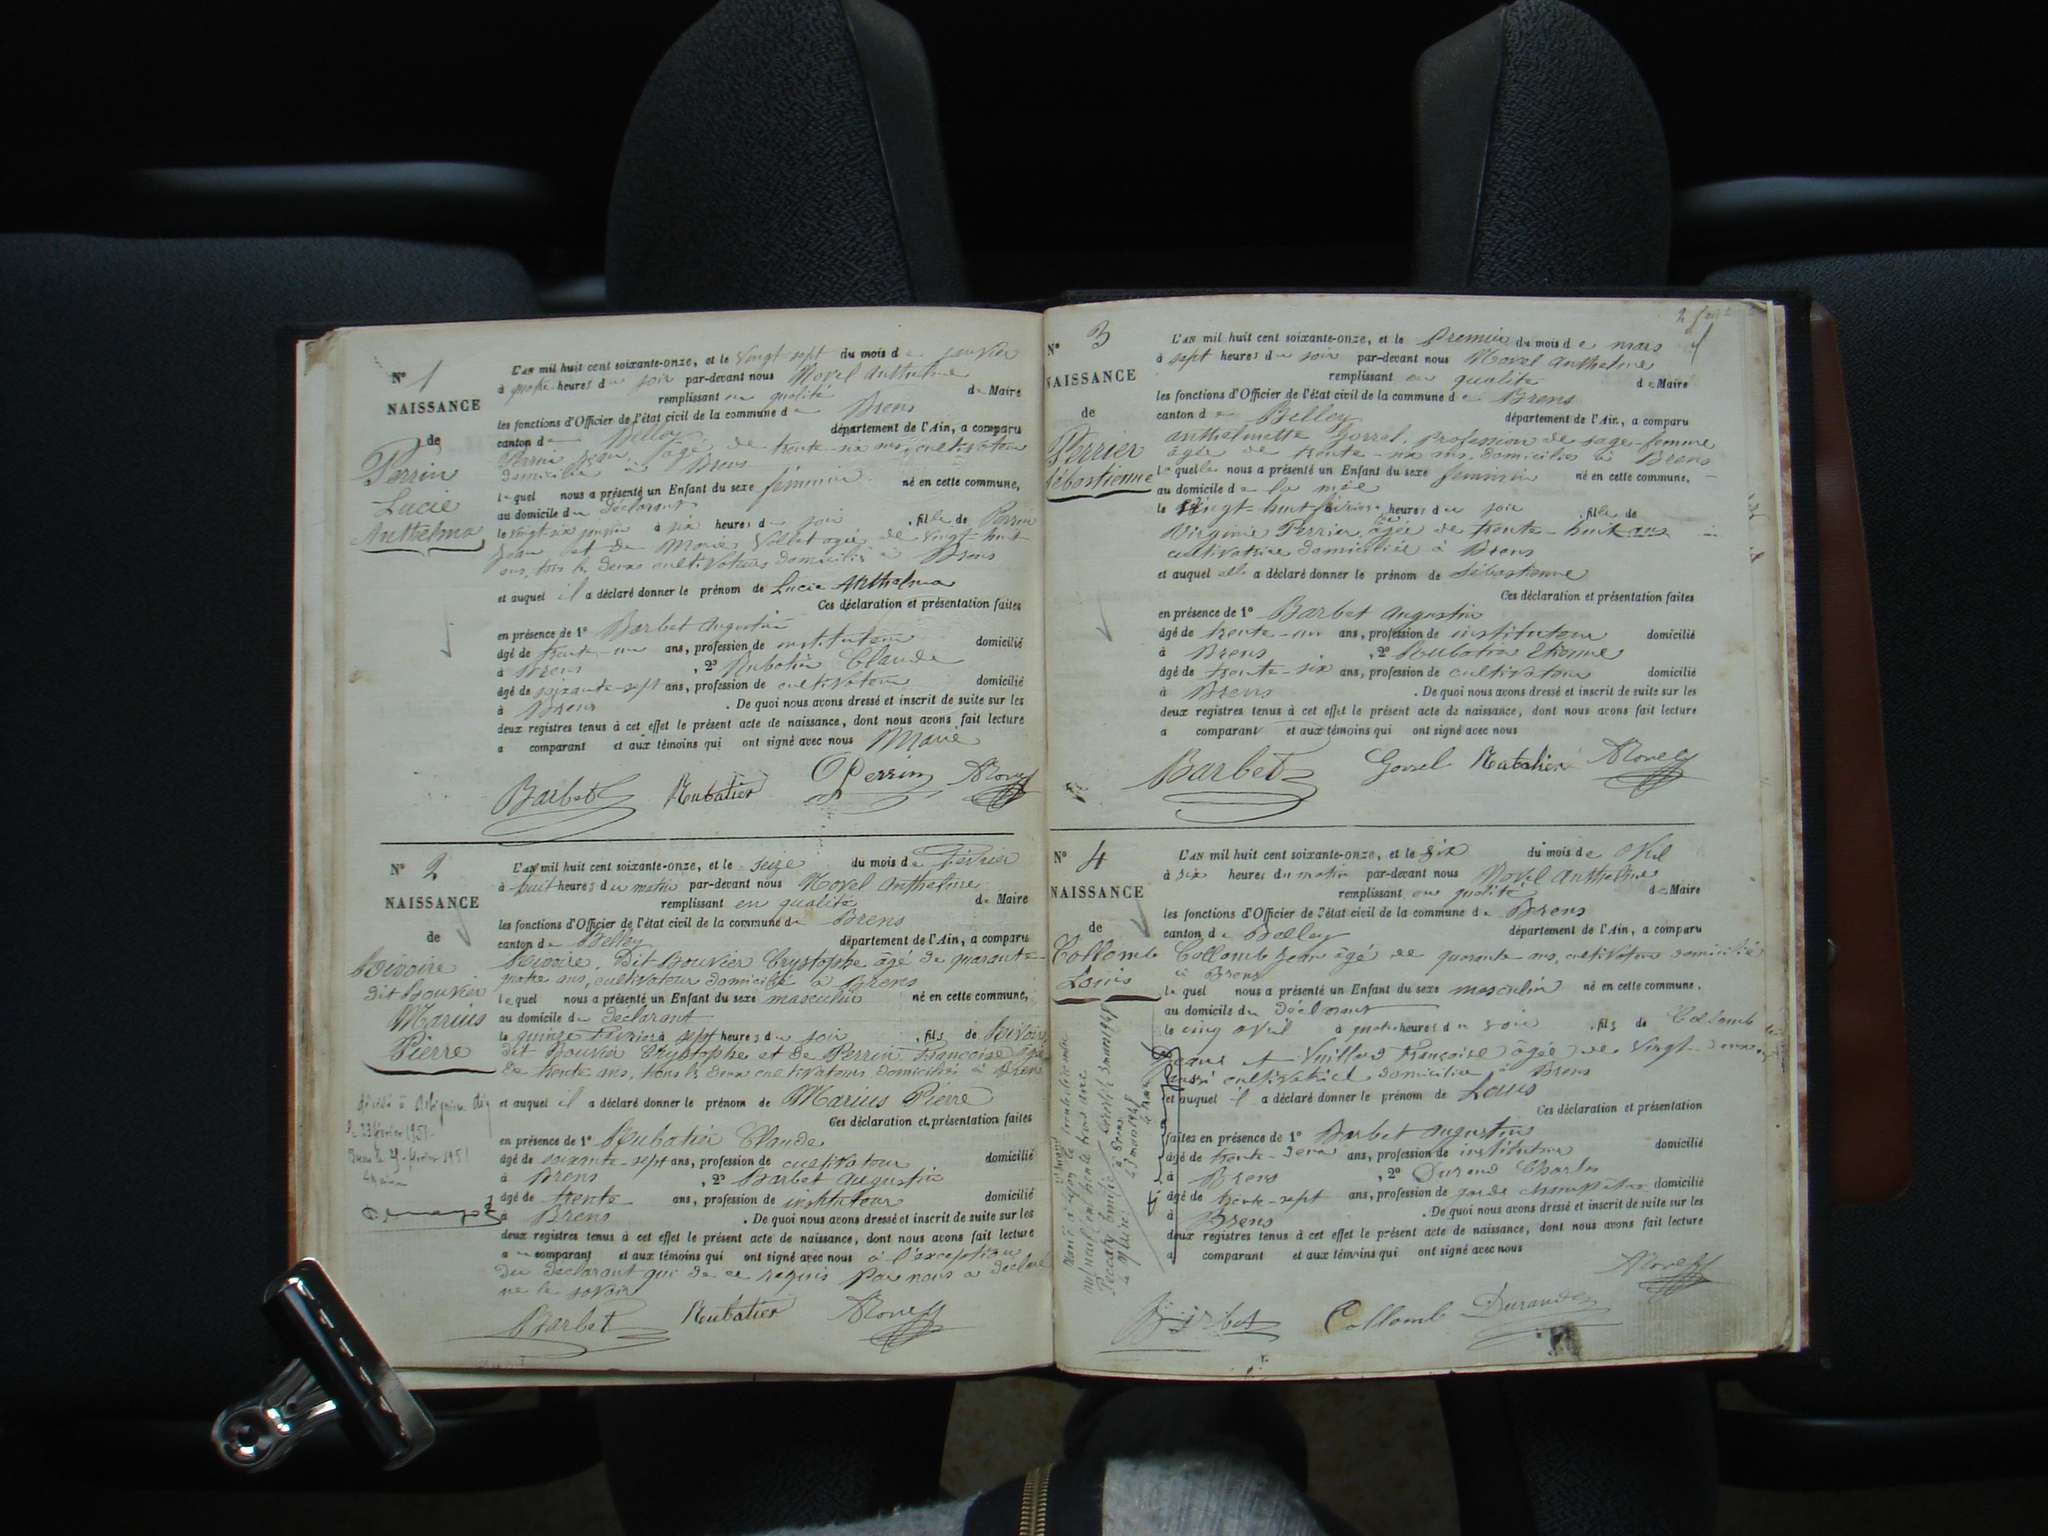 N° 1
NAISSANCE
de
Perrin
Lucie
Anthelma
L'AN mil huit cent soixante-onze, et le vingt-sept du mois de janvier
à quatre heures du soir par-devant nous Morel Anthelme
remplissant en qualité de Maire
les fonctions d'Officier de l'état civil de la commune de Brens
canton de Belley département de l'Ain, a comparu
Perrin Jean, âgé de trente-six ans, cultivateur
domicilié à Brens
lequel nous a présenté un Enfant du sexe féminin né en cette commune,
au domicile du déclarant
le vingt-six janvier à six heures du soir, fille de Perrin
Jean et de Marie Vollet agée de vingt-huit
ans, tous les deux cultivateurs domiciliés à Brens
et auquel il a déclaré donner le prénom de Lucie Anthelma
Ces déclaration et présentation faites
en présence de 1° Barbet Augustin
âgé de trente-un ans, profession de instituteur domicilié
à Brens, 2° Rubatier Claude
âgé de soixante-sept ans, profession de cultivateur domicilié
à Brens. De quoi nous avons dressé et inscrit de suite sur les
deux registres tenus à cet effet le présent acte de naissance, dont nous avons fait lecture
a comparant et aux témoins qui ont signé avec nous Maire
Barbet Rubatier Perrin Morel
N° 2
NAISSANCE
de
Bivoire
dit Bouvier
Marius
Pierre
L'AN mil huit cent soixante-onze, et le seize du mois de Février
à huit heures du matin par-devant nous Morel Anthelme
remplissant en qualité de Maire
les fonctions d'Officier de l'état civil de la commune de Brens
canton de Belley département de l'Ain, a comparu
Bivoire, dit Bouvier Crystophe âgé de quarante-
quatre ans, cultivateur domicilié à Brens
lequel nous a présenté un Enfant du sexe masculin né en cette commune,
au domicile du déclarant
le quinze Février à sept heures du soir, fils de Bivoire
dit Bouvier Crystophe et de Perrin Françoise âgée
de trente ans, tous les deux cultivateurs domiciliés à Brens
et auquel il a déclaré donner le prénom de Marius Pierre
Ces déclaration et présentation faites
en présence de 1° Rubatier Claude
âgé de soixante-sept ans, profession de cultivateur domicilié
à Brens, 2° Barbet Augustin
âgé de trente ans, profession de instituteur domicilié
à Brens. De quoi nous avons dressé et inscrit de suite sur les
deux registres tenus à cet effet le présent acte de naissance, dont nous avons fait lecture
au comparant et aux témoins qui ont signé avec nous à l'exception
du déclarant qui de ce requis par nous a déclaré
ne le savoir
Barbet Rubatier Morel
décédé à
le 23 février 1951
Brens le 29 février 1951
N° 3
NAISSANCE
de
Perrier
Sébastienne
L'AN mil huit cent soixante-onze, et le Premier du mois de mars
à sept heures du soir par-devant nous Morel Anthelme
remplissant en qualité de Maire
les fonctions d'Officier de l'état civil de la commune de Brens
canton de Belley département de l'Ain, a comparu
Anthelmette Gorrel, profession de sage-femme
âgée de trente-six ans, domiciliée à Brens
laquelle nous a présenté un Enfant du sexe féminin né en cette commune,
au domicile de la mère
le vingt-huit février heures du soir, fille de
Virginie Perrier, âgée de trente-huit ans
cultivatrice domiciliée à Brens
et auquel elle a déclaré donner le prénom de Sébastienne
Ces déclaration et présentation faites
en présence de 1° Barbet Augustin
âgé de trente-un ans, profession de instituteur domicilié
à Brens, 2° Rubatier Etienne
âgé de trente-six ans, profession de cultivateur domicilié
à Brens. De quoi nous avons dressé et inscrit de suite sur les
deux registres tenus à cet effet le présent acte de naissance, dont nous avons fait lecture
a comparant et aux témoins qui ont signé avec nous
Barbet Gorrel Rubatier Morel
N° 4
NAISSANCE
de
Collomb
Louis
L'AN mil huit cent soixante-onze, et le six du mois de Avril
à six heures du matin par-devant nous Morel Anthelme
remplissant en qualité de Maire
les fonctions d'Officier de l'état civil de la commune de Brens
canton de Belley département de l'Ain, a comparu
Collomb Jean âgé de quarante ans, cultivateur domicilié
à Brens
lequel nous a présenté un Enfant du sexe masculin né en cette commune,
au domicile du déclarant
le cinq avril à quatre heures du soir, fils de Collomb
Jean et Vuillerd Françoise âgée de vingt-deux
ans cultivatrice domiciliée à Brens
et auquel il a déclaré donner le prénom de Louis
Ces déclaration et présentation
faites en présence de 1° Barbet Augustin
âgé de trente-deux ans, profession de instituteur domicilié
à Brens, 2° Durand Charles
âgé de trente-sept ans, profession de garde champêtre domicilié
à Brens. De quoi nous avons dressé et inscrit de suite sur les
deux registres tenus à cet effet le présent acte de naissance, dont nous avons fait lecture
a comparant et aux témoins qui ont signé avec nous
Morel
Barbet Collomb Durand